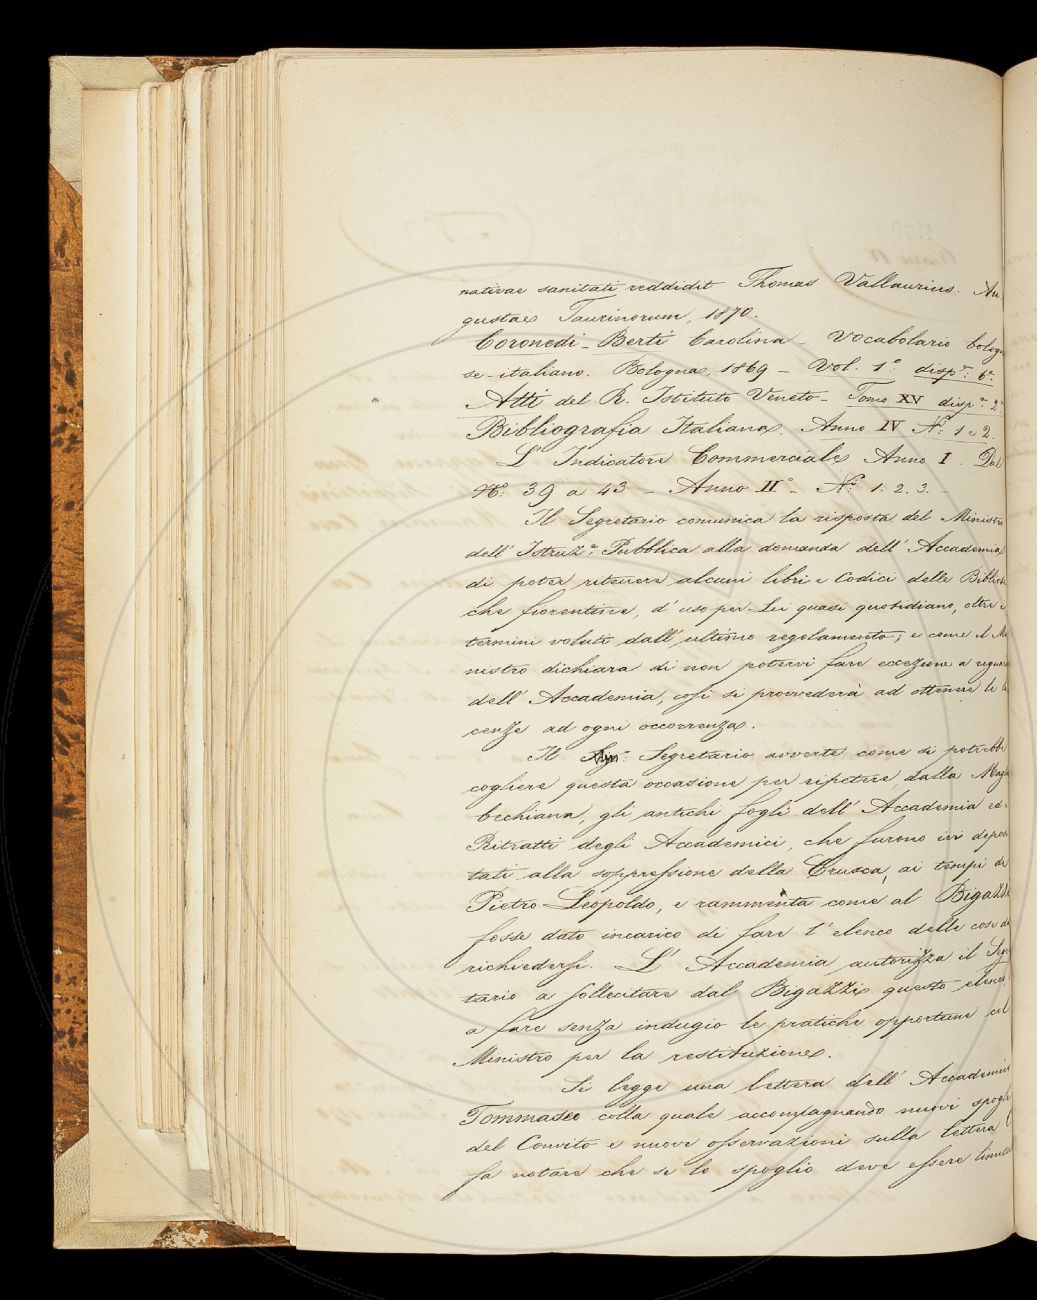 nativae sanitati reddidit Thomas Vallaurius. Au-
gustae Taurinorum, 1870.
Coronedi-Berti Carolina - Vocabolario bologn
se-italiano. Bologna, 1869 - Vol. 1º dispª: 6ª.
Atti del R. Istituto Veneto - Tomo XV dispª 2ª
Bibliografia Italiana. Anno IV Nº 1 e 2.
L'Indicatore Commerciale Anno I. Dal
Nº: 39 a 43 - Anno IIº - Nº: 1. 2. 3. -
Il Segretario comunica la risposta del Ministro
dell' Istruzª: Pubblica alla domanda dell' Accademia
di poter ritenere alcuni libri e Codici delle Bibliote
che fiorentine, d' uso per Lei quasi quotidiano, oltre i
termini voluti dall' ultimo regolamento; e come il Mi
nistro dichiara di non potervi fare eccezione a riguar
dell' Accademia, così si provvederà ad ottenere le li
cenze ad ogni occorrenza.
Il Segretario avverte come si potrebbe
cogliere questa occasione per ripetere dalla Magl
bechiana, gli antichi fogli dell' Accademia ed i
Ritratti degli Accademici, che furono ivi deposi
tati alla soppressione della Crusca, ai tempi di
Pietro Leopoldo, e rammenta come al Bigazzi
fosse dato incarico di fare l' elenco delle cose da
richiedersi. L' Accademia autorizza il Segre
tario a sollecitare dal Bigazzi questo elenco
a fare senza indugio le pratiche opportune col
Ministro per la restituzione.
Si legge una lettera dell' Accademico
Tommaseo colla quale, accompagnando nuovi spogli
del Convito e nuove osservazioni sulla lettera
fa notare che se lo spoglio deve essere